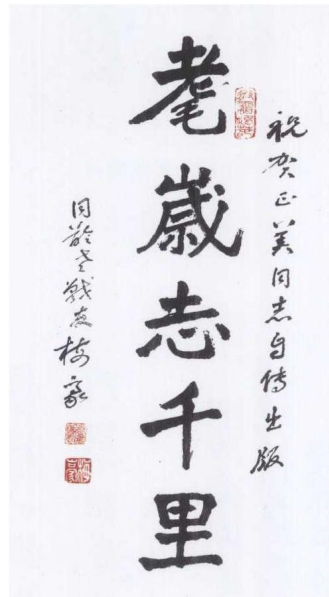 祝贺正美同志自传出版
耄岁志千里
同龄老战友梅豪